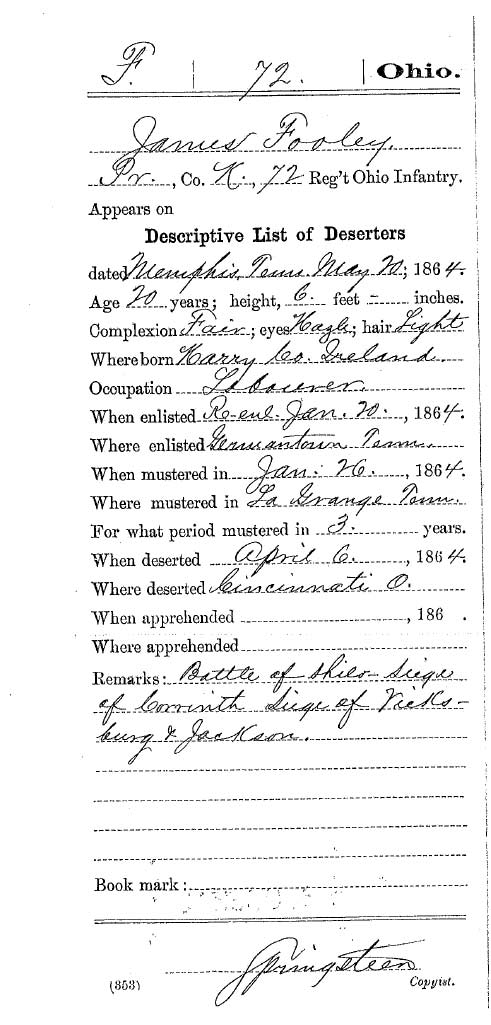 F. | 72. | Ohio.
James Fooley.
Pr., Co. K., 72 Reg't Ohio Infantry.
Appears on
Descriptive List of Deserters
dated Memphis, Tenn. May 20, 1864.
Age 20 years; height, 6 feet - inches.
Complexion Fair; eyes Hazle; hair Light
Where born Karry Co. Ireland.
Occupation Labourer
When enlisted Re-enl. Jan. 20., 1864.
Where enlisted Germantown Tenn.
When mustered in Jan. 26., 1864.
Where mustered in La Grange Tenn.
For what period mustered in 3. years.
When deserted April 6., 1864.
Where deserted Cincinnati O.
When apprehended , 186 .
Where apprehended
Remarks: Battle of Shilo - Siege
of Corrinth Siege of Vicks-
burg & Jackson.
Book mark:
Springsteen
(353) Copyist.